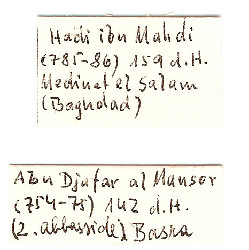 Hadi ibn Mahdi
(785-86) 159 d.H.
Medinet el Salam
(Baghdad)
Abu Djafar al Mansor
(754-75) 142 d.H.
(2. abbasside) Basra